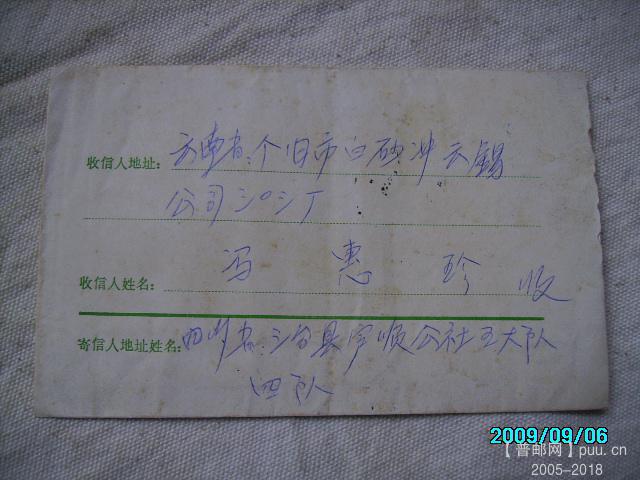 收信人地址: 云南省.个旧市白砂冲云锡
公司三〇三厂
收信人姓名: 冯惠珍 收
寄信人地址姓名: 四川省.三台县宁顺公社五大队
四队
2009/09/06
【普邮网】puu.cn
2005-2018